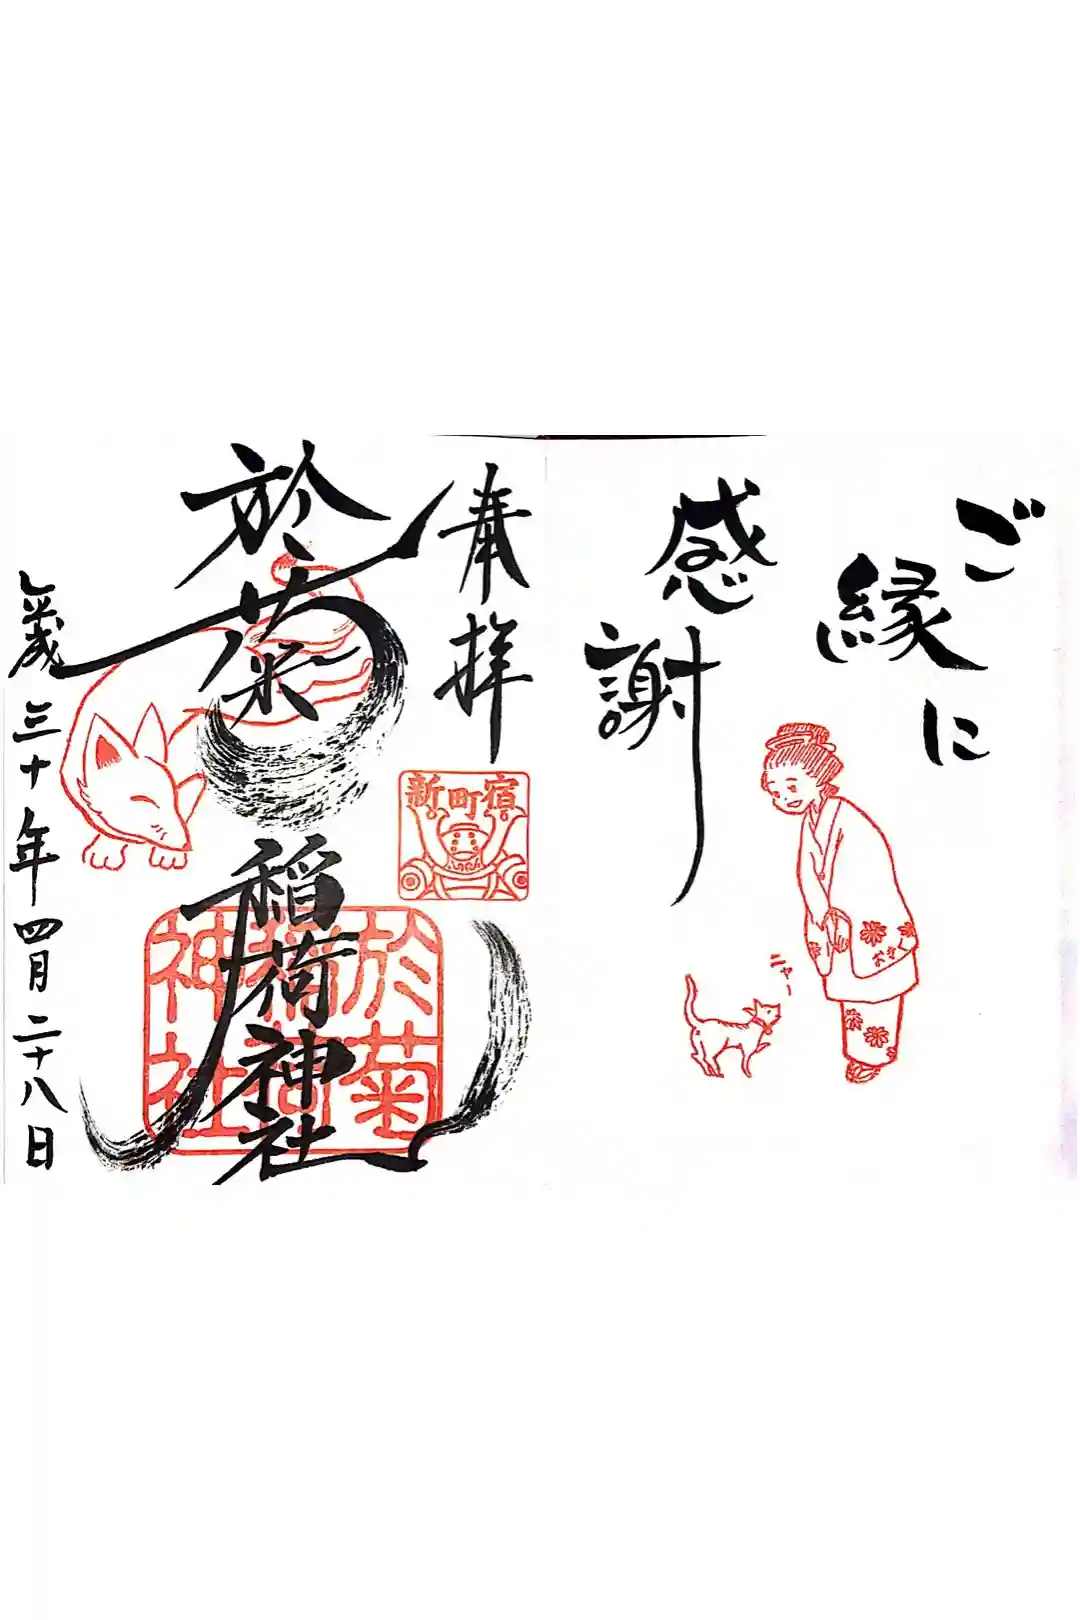 ご縁に
感謝
ニャー
おきく
奉拝
新町宿
於菊稲荷神社
於菊
稲荷
神社
平成三十年四月二十八日